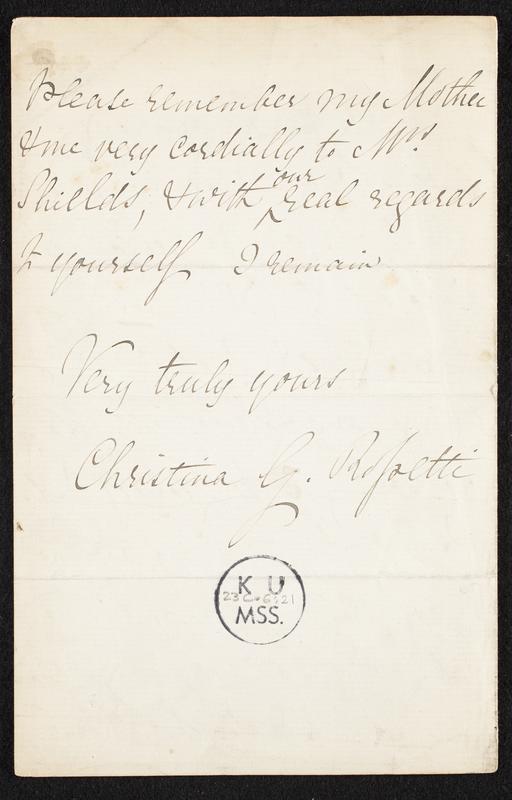 Please remember my Mother
& me very cordially to Mrs
Shields, & with our real regards
to yourself I remain
Very truly yours
Christina G. Rossetti
K U
23 C
MSS.